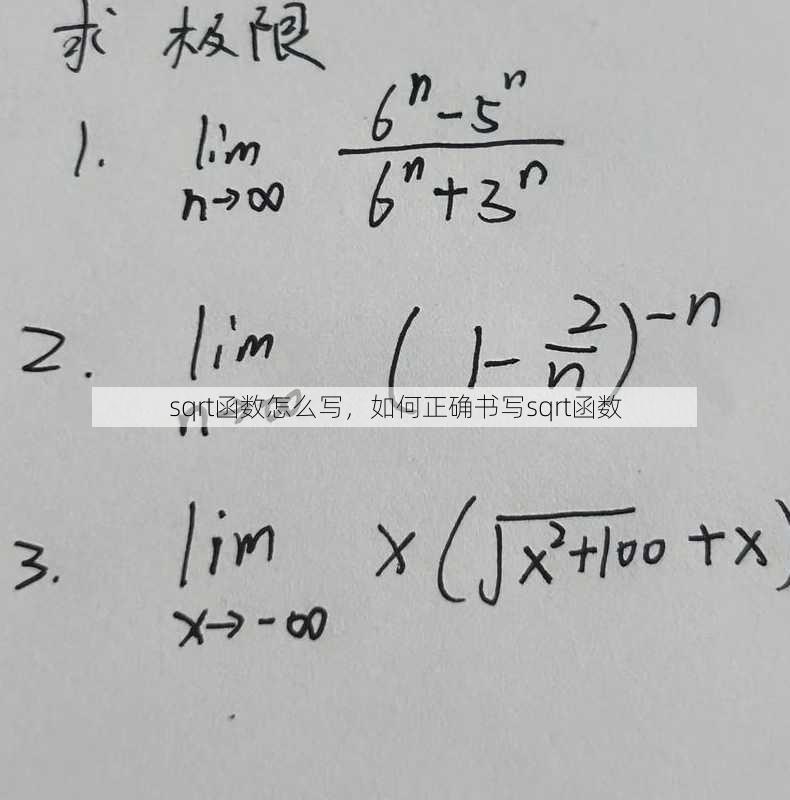 求 极限
1. lim n→∞ (6^n - 5^n)/(6^n + 3^n)
2. lim n→∞ (1 - 2/n)^(-n)
sqrt函数怎么写，如何正确书写sqrt函数
3. lim x→-∞ x(√(x²+100) + x)